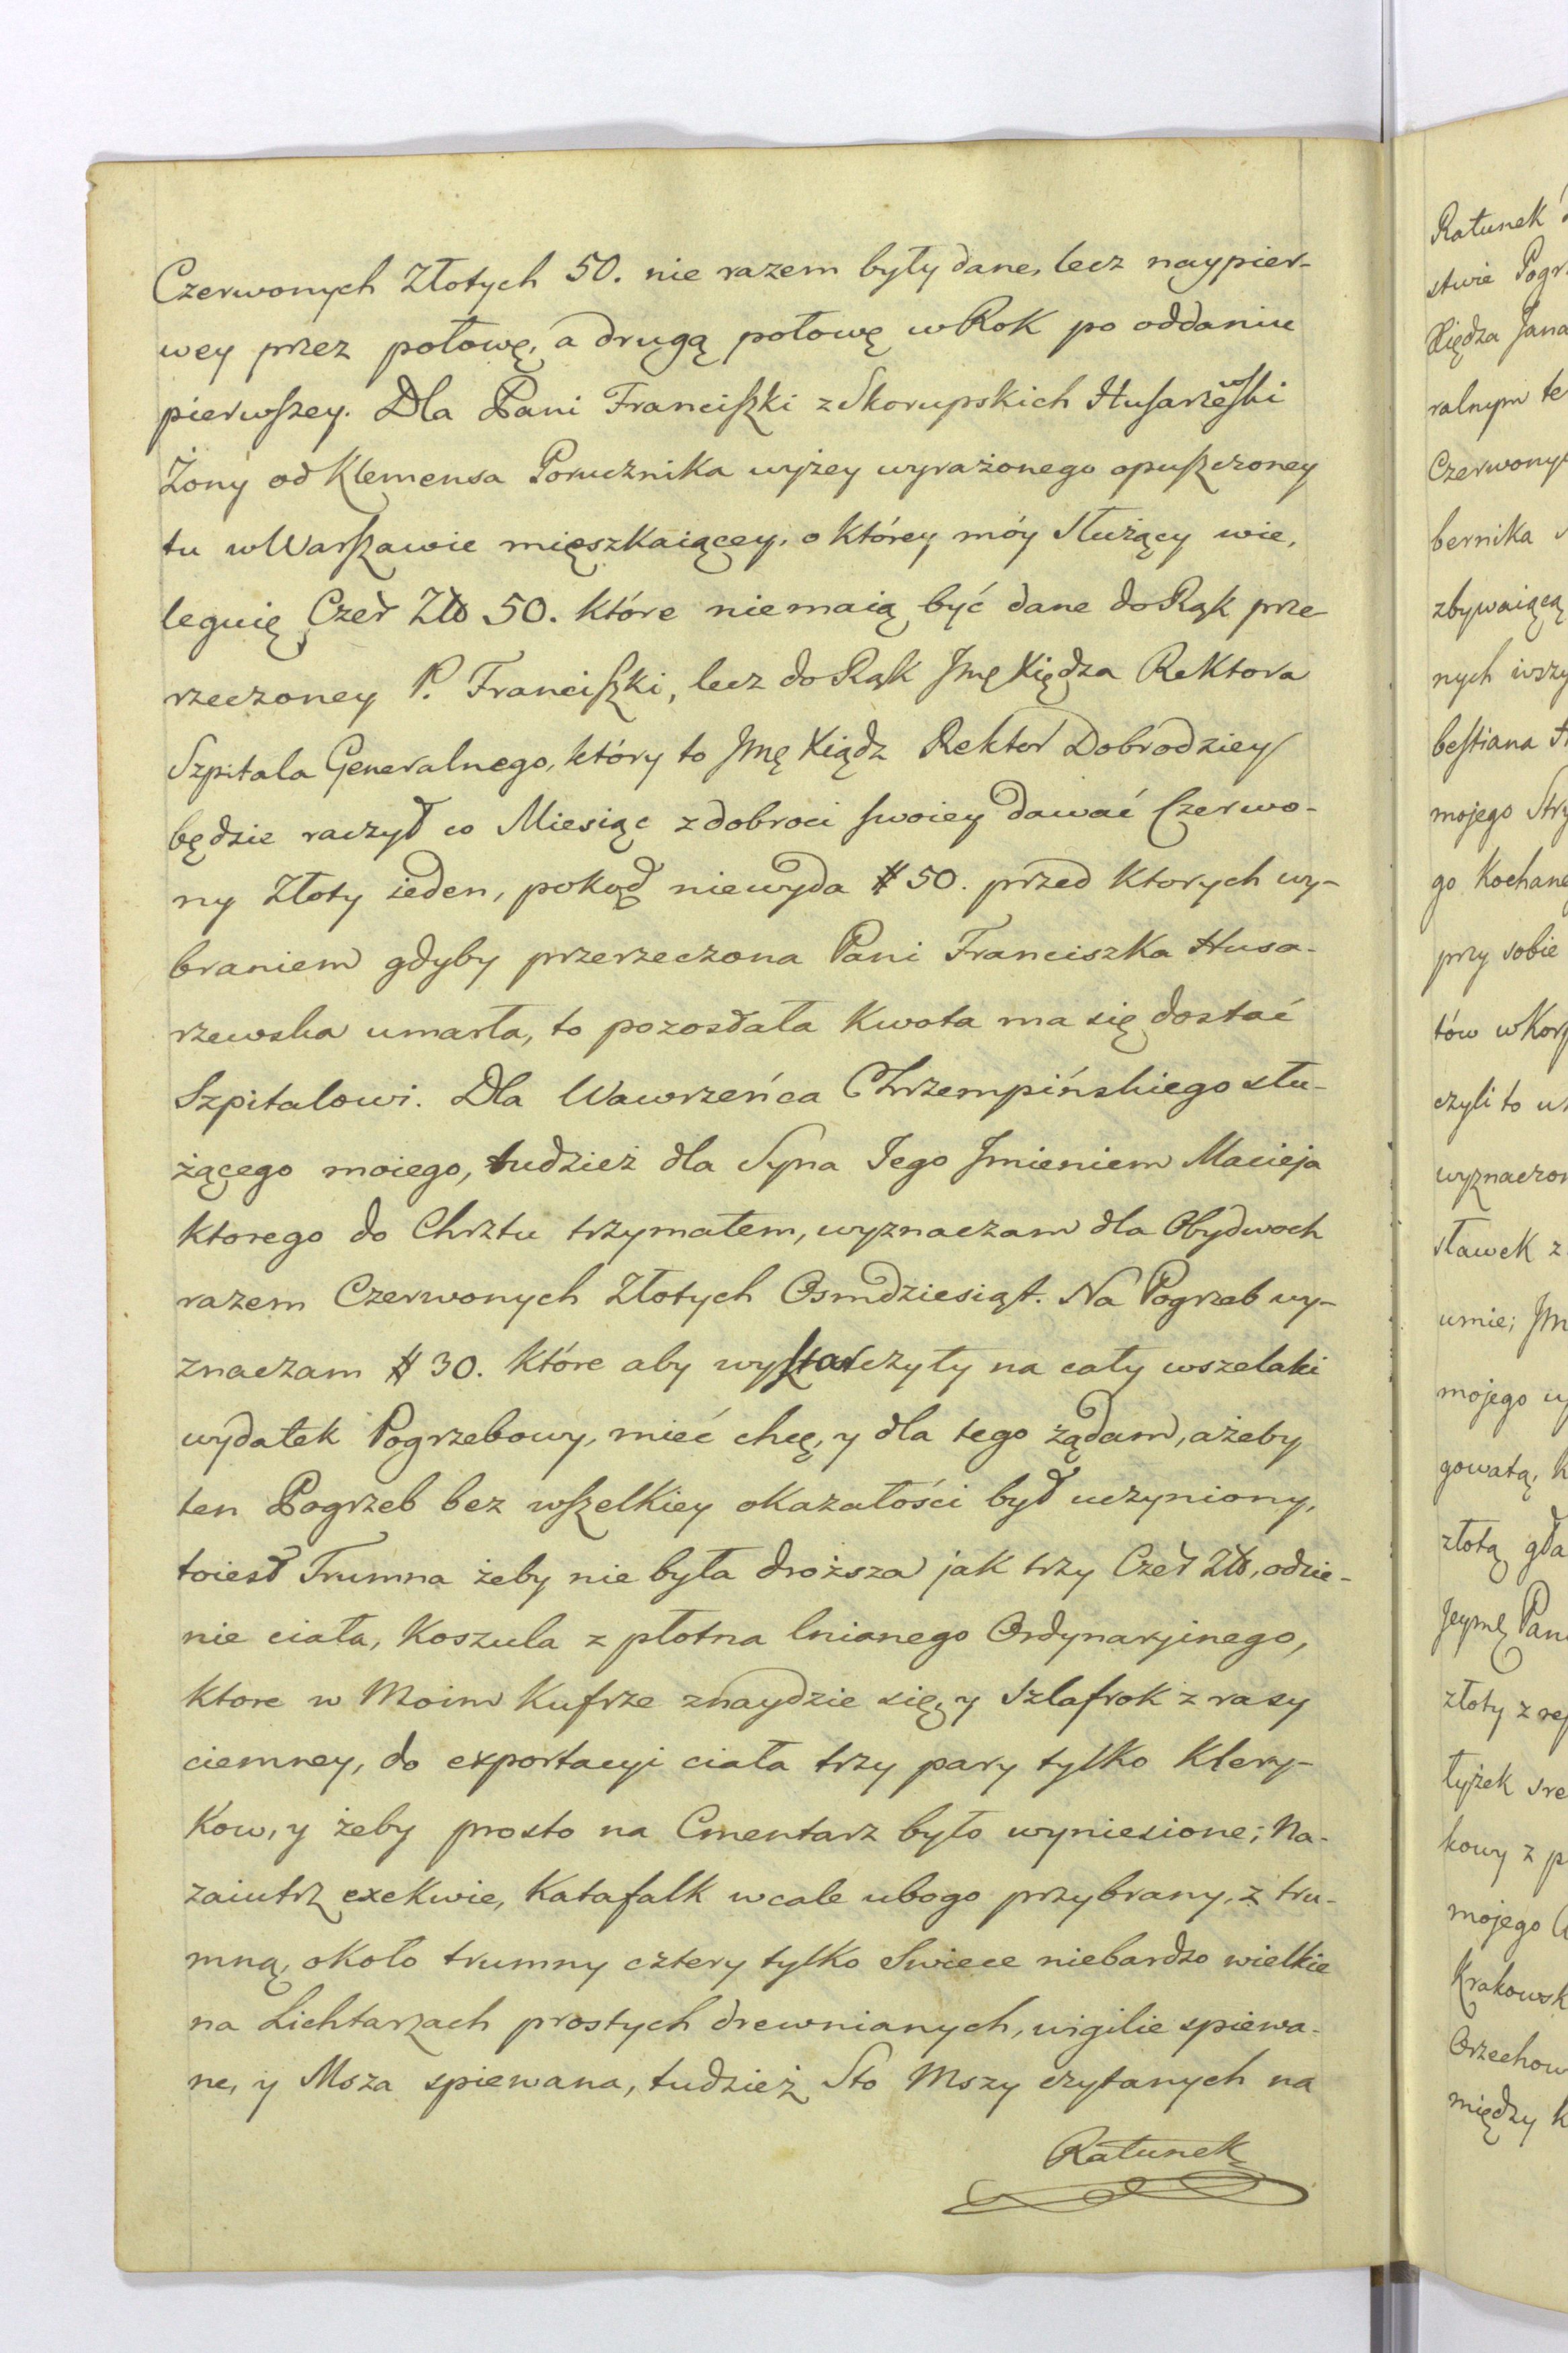 Czerwonych Złotych 50. nie razem były dane, lecz naypier-
wey przez połowę, a drugą połowę w Rok po oddaniu
pierwszey. Dla Pani Franciszki z Skorupskich Husarzewski
Żony od Klemensa Porucznika wyżey wyrażonego opuszczoney
tu w Warszawie mięszkaiącey, o którey móy Służący wie,
leguię Czer Złł 50. które nie maią być dane do Rąk prze
rzeczoney P. Franciszki, lecz do Rąk Jmę Xiędza Rektora
Szpitala Generalnego, który to Jmę Xiądz Rektor Dobrodziey
będzie raczył co Miesiąc z dobroci swoiey dawać Czerwo-
ny Złoty ieden, pokąd niewyda # 50. przed ktorych wy-
braniem gdyby przerzeczona Pani Franciszka Husa-
rzewska umarła, to pozostała kwota ma się dostać
Szpitalowi. Dla Wawrzeńca Chrzempińskiego słu-
żącego moiego, tudzież dla Syna Jego Jmieniem Macieja
ktorego do Chrztu trzymałem, wyznaczam dla Obydwoch
razem Czerwonych Złotych Osmdziesiąt. Na Pogrzeb wy-
znaczam # 30. które aby wystarczyły na cały wszelaki
wydatek Pogrzebowy, mieć chcę, y dla tego żądam, ażeby
ten Pogrzeb bez wszelkiey okazałości był uczyniony,
toiest Trumna żeby nie była droższa jak trzy Czer Złł, odzie-
nie ciała, Koszula z płotna lnianego Ordynaryinego,
ktore w Moim Kufrze znaydzie się, y Szlafrok z rasy
ciemney, do exportacyi ciała trzy pary tylko Klery-
kow, y żeby prosto na Cmentarz było wyniesione; Na-
zaiutrz exekwie, Katafalk wcale ubogo przybrany, z tru-
mną, około trumny cztery tylko Swiece niebardzo wielkie
na Lichtarzach prostych drewnianych, wigilie spiewa-
ne, y Msza spiewana, tudzież Sto Mszy czytanych na
Ratunek
Ratunek
stwie Pogr
Xiędza Jana
ralnym te
Czerwony
bernika
zbywaiącą
nych wszy
bestiana
mojego Stry
go Kochane
przy sobie
tów w Korp
czyli to w
wyznaczon
stawek z
umie; Jm
mojego
gowatą, k
złotą gła
Jeymę Pan
złoty z rep
łyżek sre
kowy z p
mojego
Krakowsk
Orzechow
między k